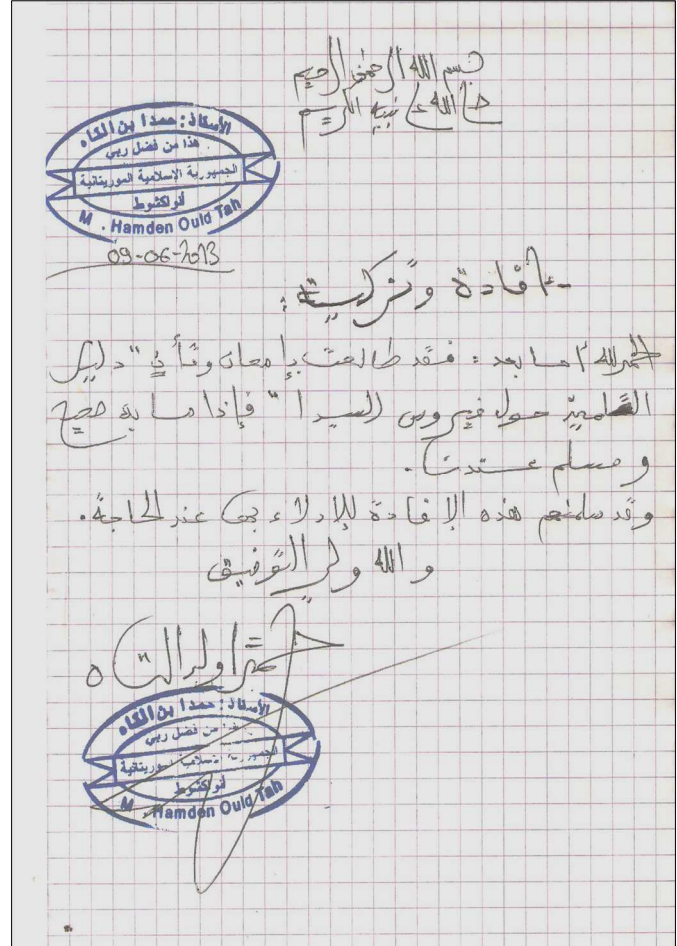 بسم الله الرحمن الرحيم
صلى الله على نبيه الكريم
الأستاذ: حمدا بن التاه
هذا من فضل ربي
الجمهورية الإسلامية الموريتانية
أنواكشوط
M . Hamden Ould Tah
09-06-2013
إفادة وتزكية:
الحمد لله أما بعد: فقد طالعت بإمعان وتأن "دليل
حول فيروس السيدا" فإذا ما به صحيح
ومسلم عندنا.
وقد سلمتهم هذه الإفادة للإدلاء بها عند الحاجة.
والله ولي التوفيق
حمدا ولد التاه
الأستاذ: حمدا بن التاه
هذا من فضل ربي
الجمهورية الإسلامية الموريتانية
أنواكشوط
M . Hamden Ould Tah